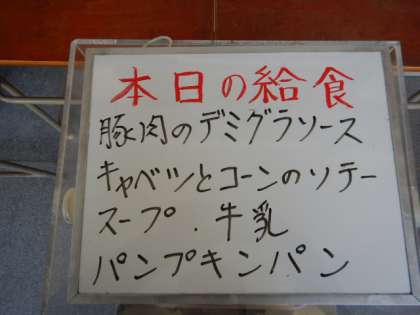 本日の給食
豚肉のデミグラソース
キャベツとコーンのソテー
スープ．牛乳
パンプキンパン